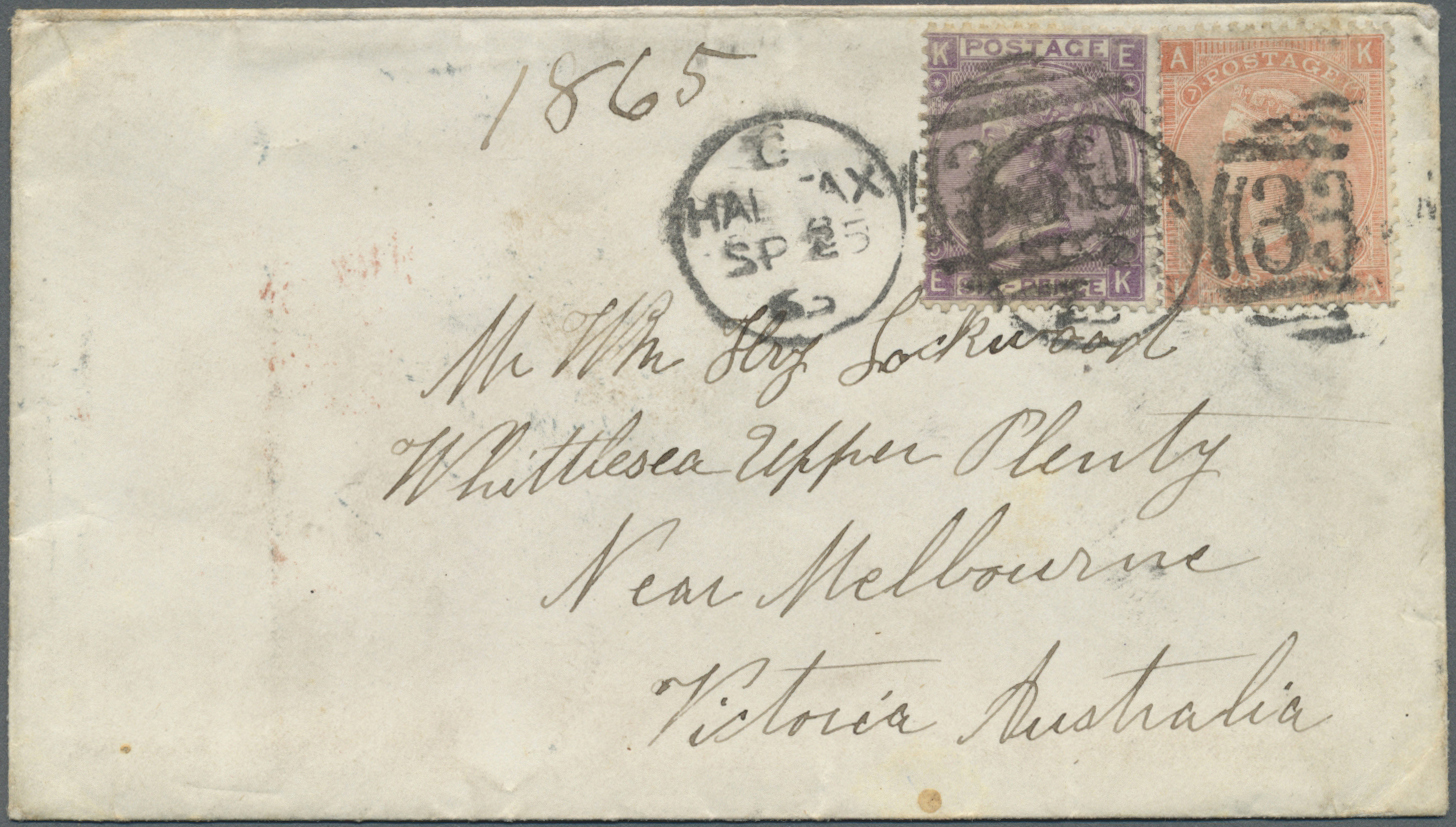 1865
K POSTAGE E
A POSTAGE K
7
C
HALIFAX
SP 25
65
33
E SIX-PENCE K
A
Mr Wm Hy Lockwood
Whittlesea Upper Plenty
Near Melbourne
Victoria Australia